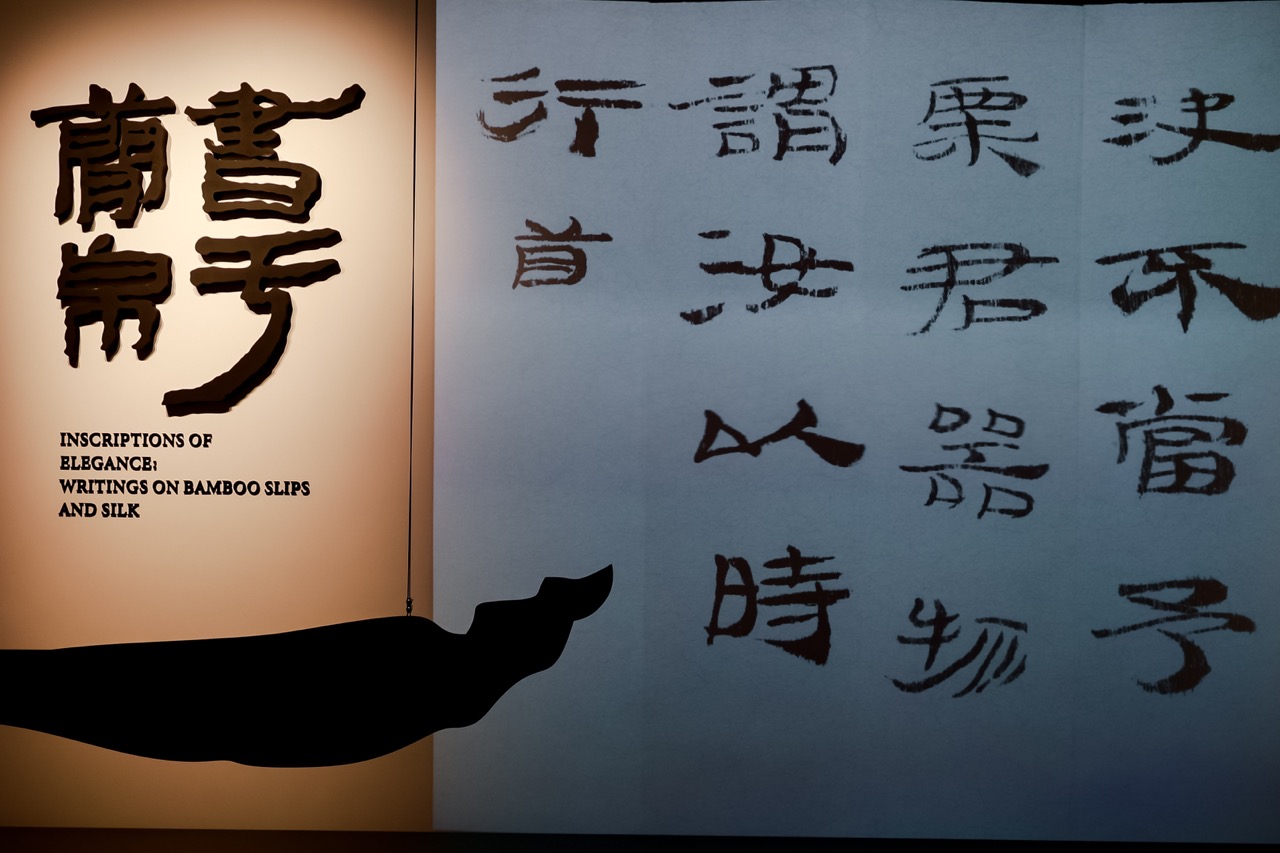 書于
簡帛
INSCRIPTIONS OF
ELEGANCE:
WRITINGS ON BAMBOO SLIPS
AND SILK
決不當予
粟君器物
謂汝以時
行首